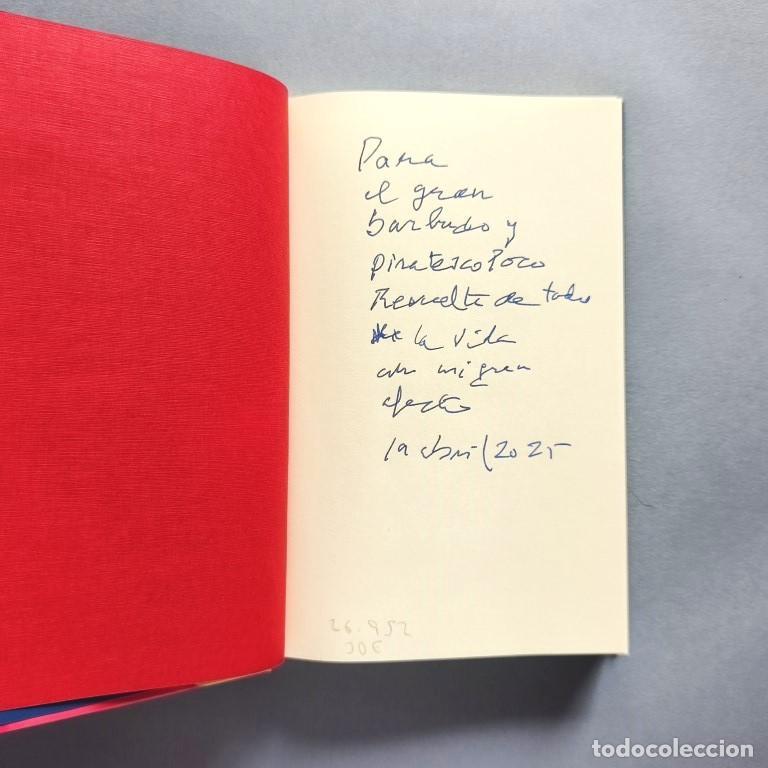 Para
el gran
barbudo y
piratesco Poco
Revuelta de todo
la vida
con mi gran
afecto
19 abril/2025
26.952
JOE
todocoleccion